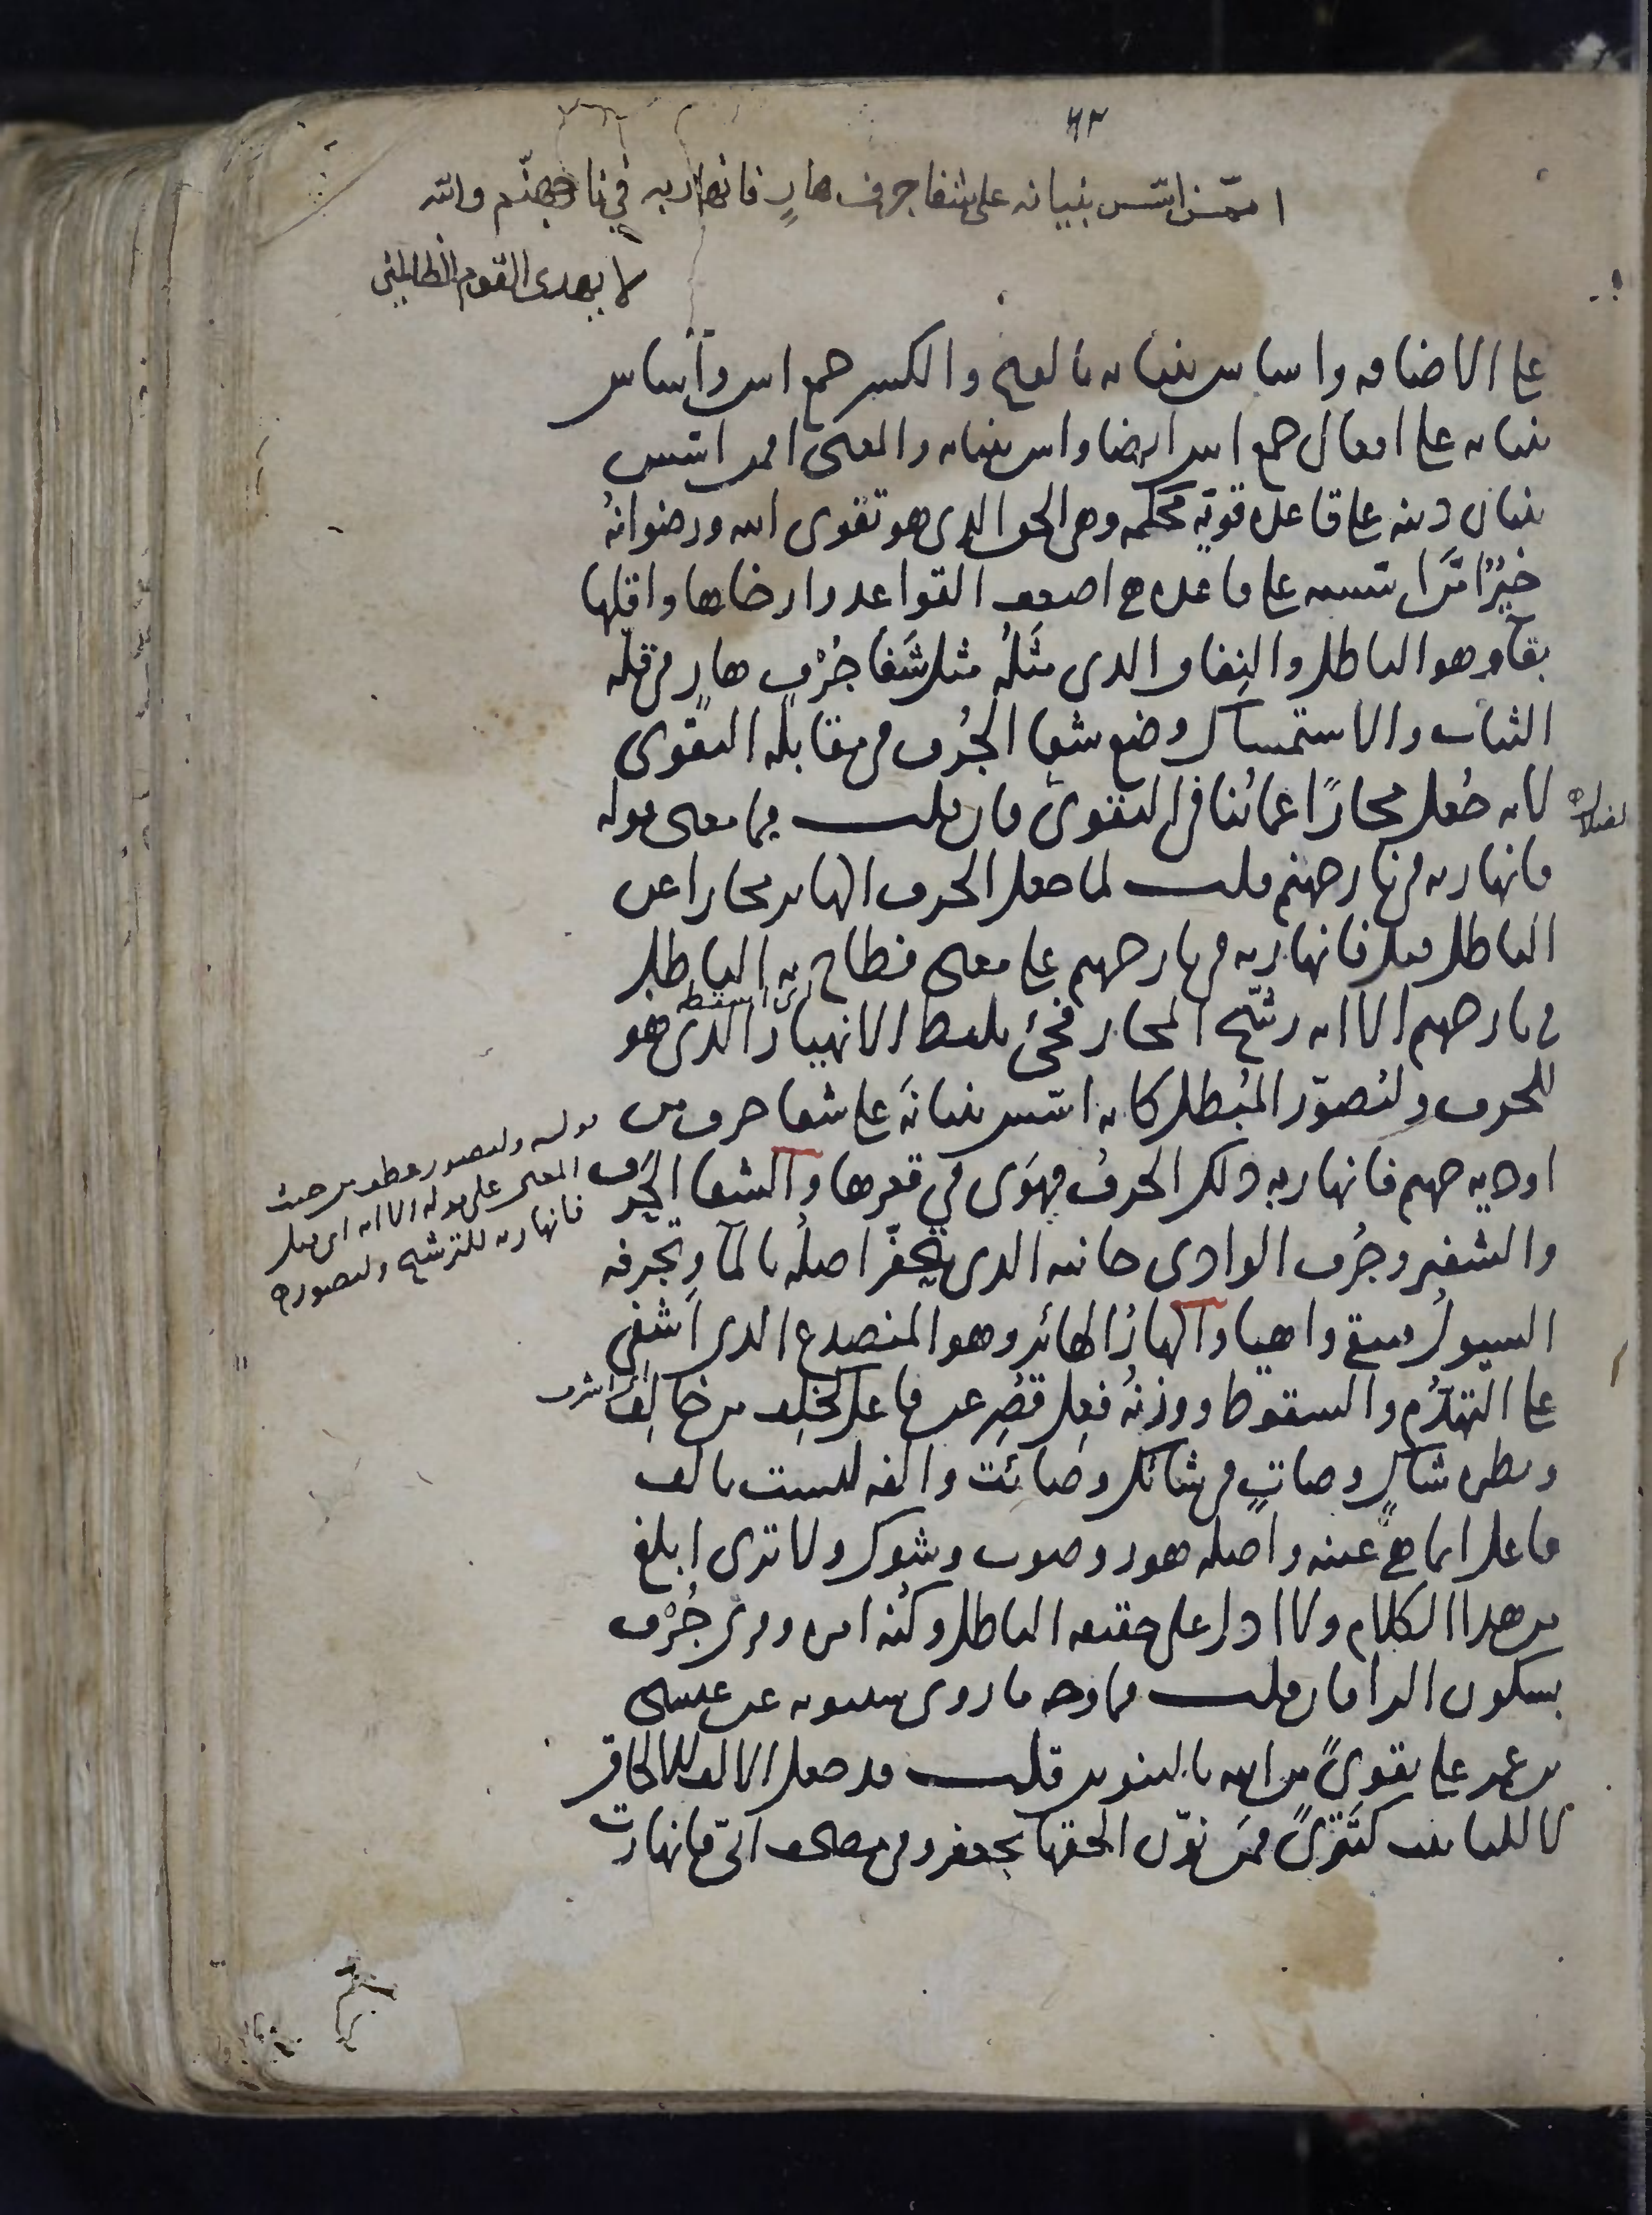 ٦٢
ام من اسّس بنيانه على شفا جرف هارٍ فانهار به في نار جهنّم والله
لا يهدى القوم الظالمين
على الاضافه واساس بنيانه بالفتح والكسر جمع اس وآساس
بنيانه على افعال جمع اس ايضا واس بنيانه والمعنى افمن اسّس
بنيان دينه على قاعدة قويّه محكمه وهى الحق الذى هو تقوى الله ورضوانهُ
خيرٌ امّن اسّسه على قاعدة هى اضعف القواعد وارخاها واقلها
بقآء وهو الباطل والنِفاق الذى مثَلهُ مثل شَفا جُرْفٍ هارٍ فى قله
الثبات والاستمساك وضع شفا الجُرف فى مقابله التقوى
لانه جُعل مجازًا عمّا ينافى التقوى فان قلت فما معنى قوله
فانهار به فى نار جهنم قلت لما جعل الجرف الهاير مجازا عن
الباطل قيل فانهار به فى نار جهنم على معنى فطاح به الباطل
فى نار جهنم الا انه رشّح المجاز فجئ بلفظ الانهيار الذى هو
للجرف وليُصوّر المُبطل كانه اسّس بنيانَه على شفا جرف من
اوديه جهنم فانهار به ذلك الجرفُ فهَوَى فى قعرها والشفا الحرف
والشفير وجُرف الوادى جانبه الذى يتحفّر اصلُه بالمآ وتجرفه
السيولُ فيبقى واهيا والهارُ الهائر وهو المنصدع الذى اشفى
على التهدّم والسقوط ووزنهُ فعِل قُصِر عن فاعل كخلِف من خالِف
ونظيره شاكٍ وصاتٍ فى شائك وصائت والفه ليست بالف
فاعل انما هى عينه واصله هور وصوت وشوك ولا ترى ابلغ
من هذا الكلام ولا ادل على حقيقه الباطل وكُنه امره وقرى جُرْف
بسكون الرا فان قلت فما وجه ما روى سيبويه عن عيسى
بن عمر على تقوىً من الله بالتنوين قلت قد جعل الالف للالحاق
لا للتانيث كتَتْرىً فيمن نوّن الحقها بجعفر وفى مصحف ابىّ فانهارت
قوله وليصور عطف من حيث
المعنى على قوله الا انه اى قيل
فانهار به للترشيح وليصوره
اى اشرف